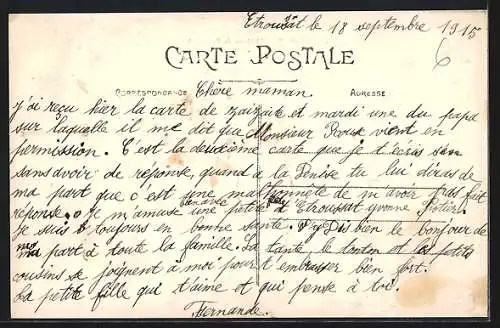 Etroussat le 18 septembre 1915
CARTE POSTALE
6
CORRESPONDANCE
ADRESSE
Chère maman
j'ai reçu hier la carte de et mardi une du papa
sur laquelle il me dit que Monsieur vient en
permission. C'est la deuxième carte que je t'écris sen
sans avoir de réponse, quand a la Denise tu lui diras de
ma part que c'est une malhonnete de m'avoir pas fait
reponse. je m'amuse une petite a Etroussat yvonne
je suis toujours en bonne sante. Dis bien le bonjour de
ma part à toute la famille. La tante le tonton et les petits
cousins se joignent à moi pour t'embrasser bien fort.
La petite fille qui t'aime et qui pense à toi.
Fernande.